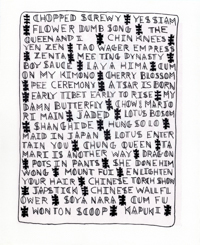 CHOPPED SCREWY YES SIAM
FLOWER DUMB SONG THE
QUEEN AND I CHIN KNEES
YEN ZEN TAO WAGER EMPRESS
ZENTA MEETING DYNASTY
BOY SAUCE LAYA HIMA CUM
ON MY KIMONO CHERRY BLOSSOM
PEE CEREMONY A TSAR IS BORN
EARLY TIBET EARLY TO RISE MY
DAMN BUTTERFLY CHOW MARIO
RI MAIN JADED LOTUS BOSOM
SHANGHIDE HUNG SOLO
MAID IN JAPAN LOTUS ENTER
TAIN YOU CHUNG QUEEN TA
MARI IS ANOTHER WAY DRAGON
POTS IN PANTS SHE DONE HIM
WONG MOUNT FUI ENLIGHTEN
YOUR HAIR CHINESE TORCH SHOW
JAPSTICK CHINESE WALLFL
OWER SOYA NARA CUM FU
WONTON SCOOP KAPUKI